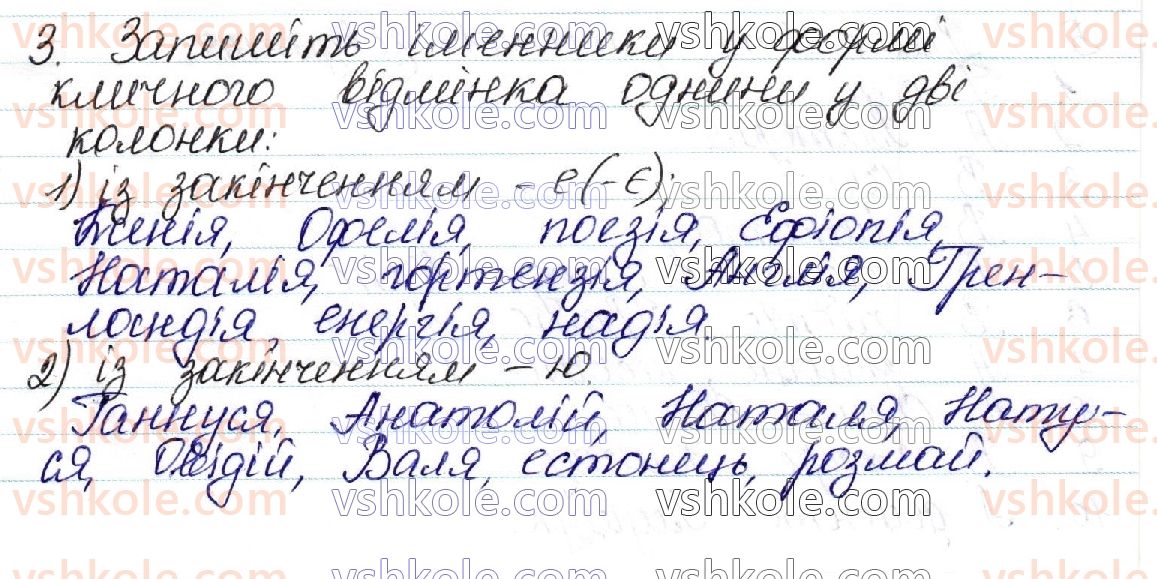 3. Запишіть іменники у формі
кличного відмінка однини у дві
колонки:
1) із закінченням -е(-є);
Ксенія, Офелія, поезія, Ефіопія,
Наталія, гортензія, Англія, Грен-
ландія, енергія, надія.
2) із закінченням -ю.
Ганнуся, Анатолій, Наталя, Нату-
ся, Овідій, Валя, естонець, розмай.
vshkole.com